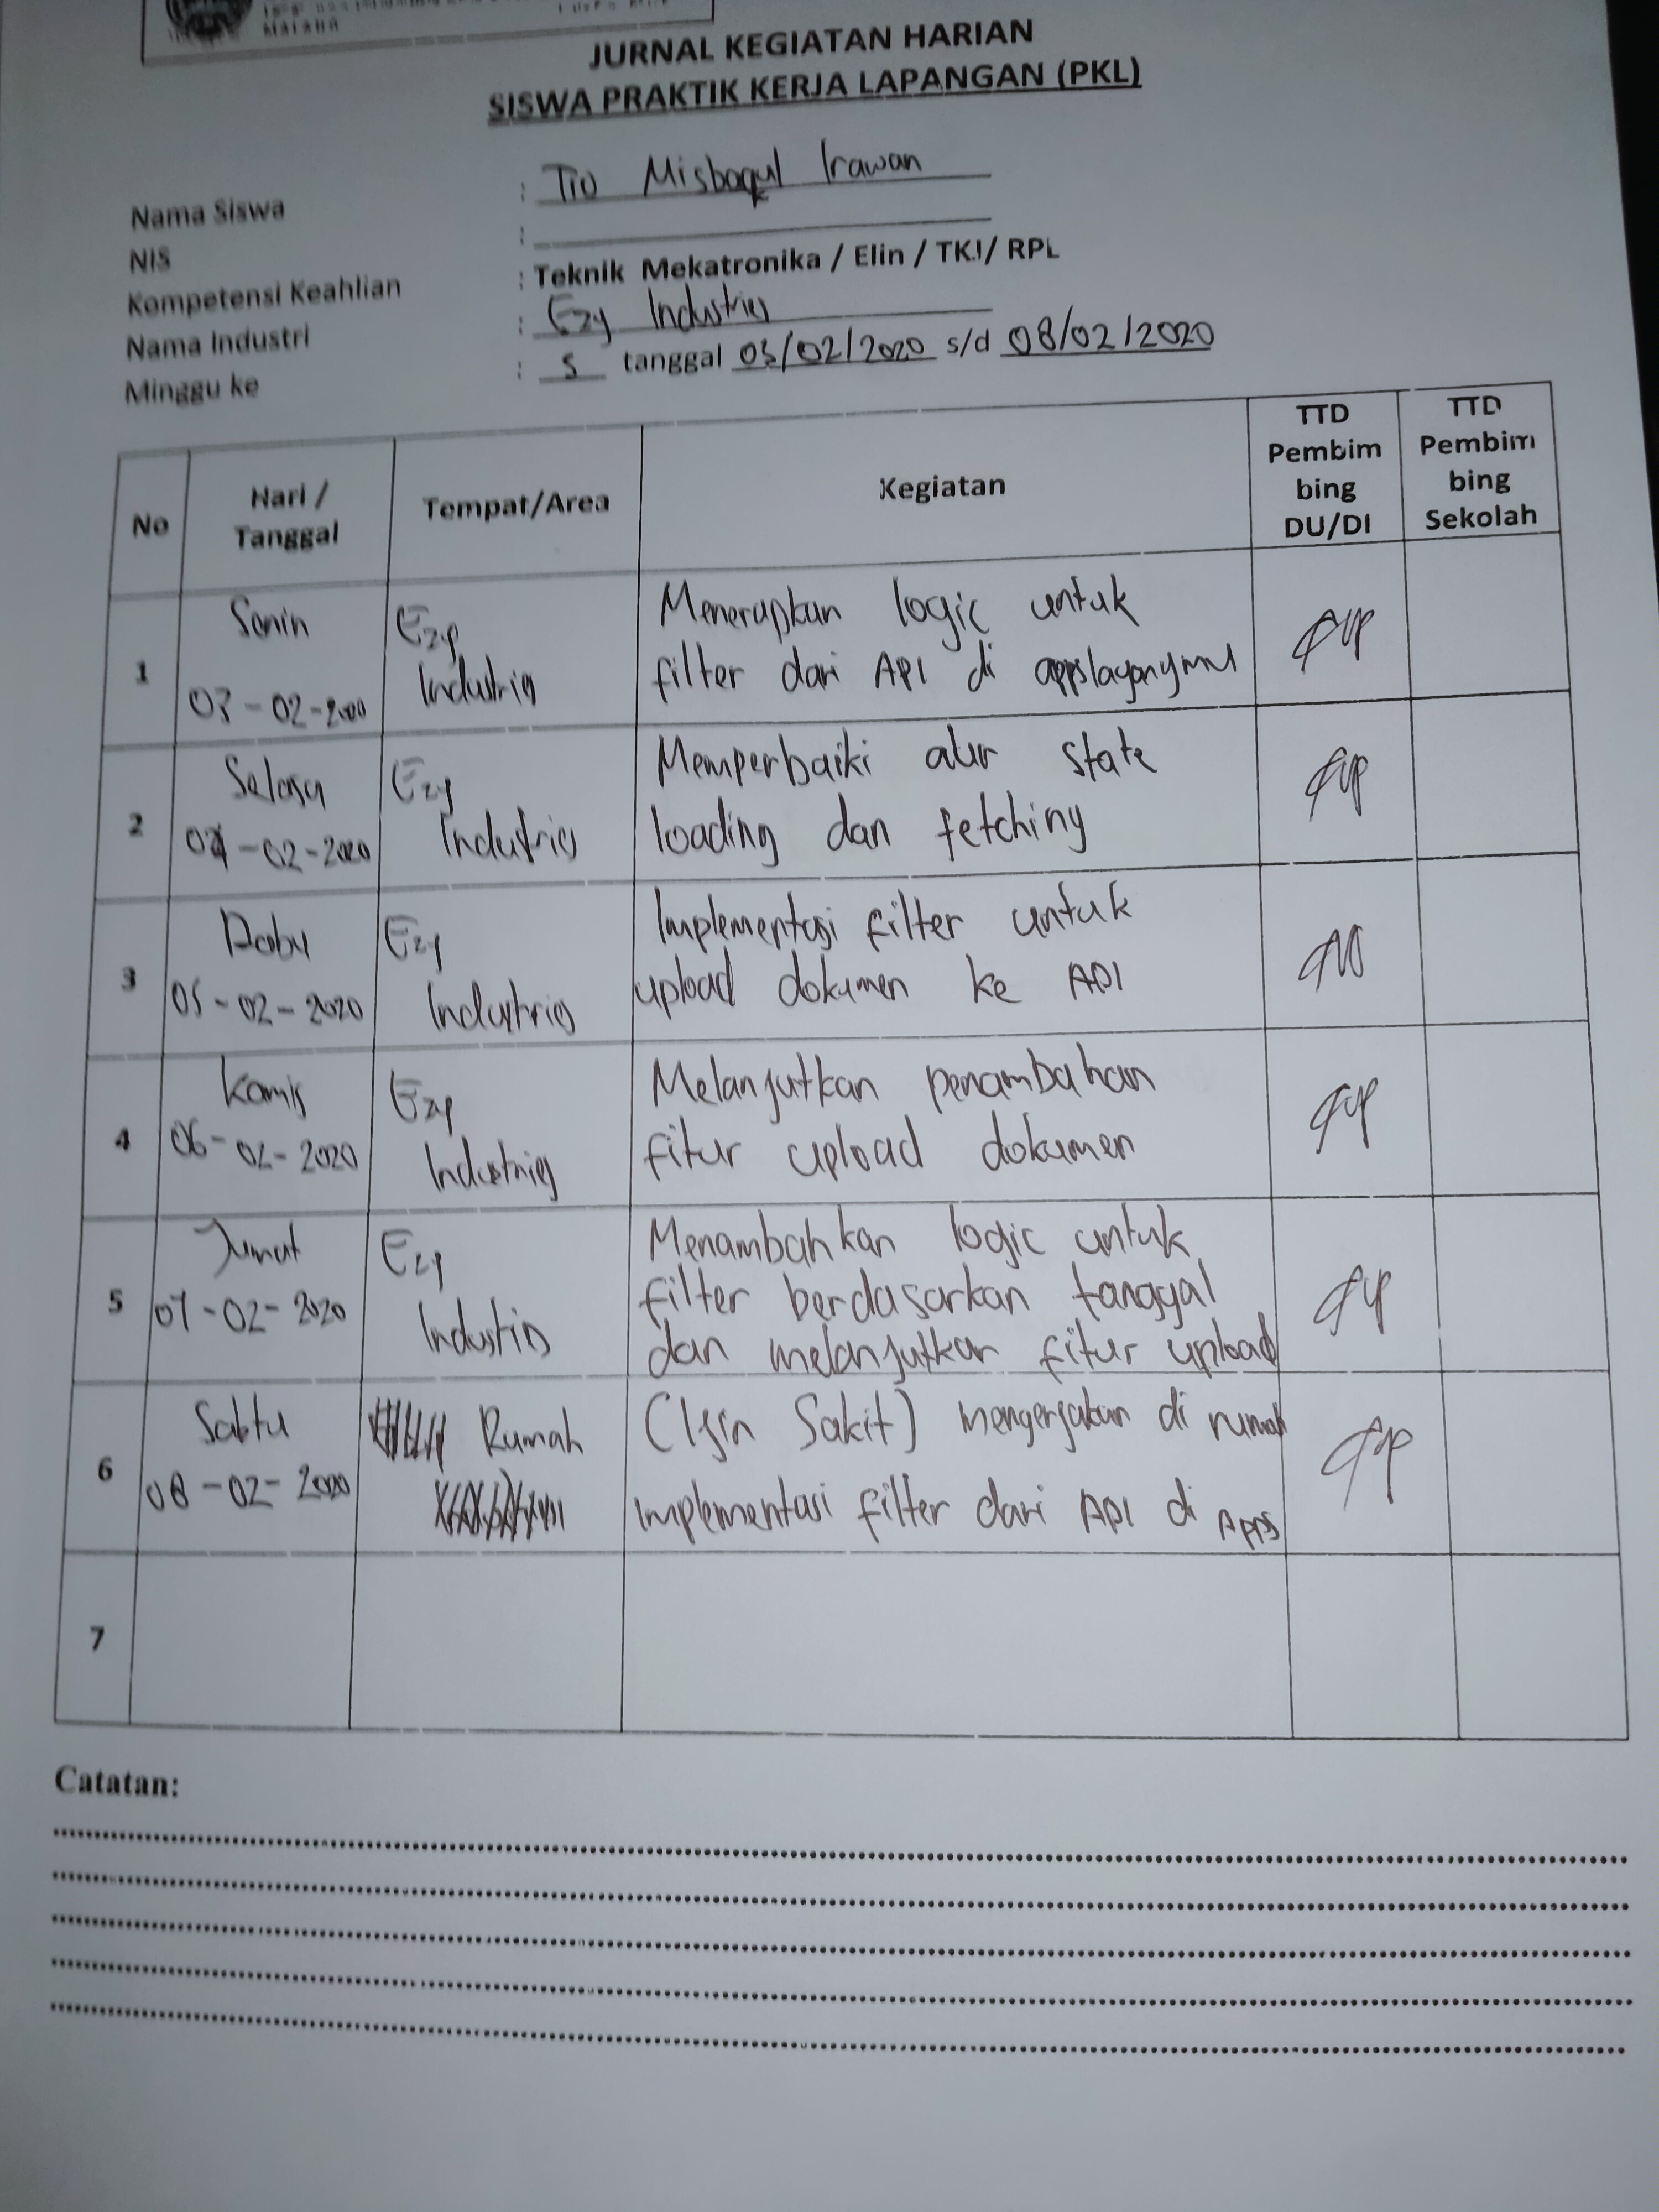 Malang
JURNAL KEGIATAN HARIAN
SISWA PRAKTIK KERJA LAPANGAN (PKL)
Nama Siswa : Tio Misbaqul Irawan
NIS :
Kompetensi Keahlian : Teknik Mekatronika / Elin / TKJ/ RPL
Nama Industri : Ezy Industries
Minggu ke : 5 tanggal 03/02/2020 s/d 08/02/2020
No
Hari /
Tanggal
Tempat/Area
Kegiatan
TTD
Pembim
bing
DU/DI
TTD
Pembim
bing
Sekolah
1
Senin
03-02-2020
Ezy
Industries
Menerapkan logic untuk
filter dari API di appslayanymu
2
Selasa
04-02-2020
Ezy
Industries
Memperbaiki alur state
loading dan fetching
3
Rabu
05-02-2020
Ezy
Industries
Implementasi filter untuk
upload dokumen ke API
4
Kamis
06-02-2020
Ezy
Industries
Melanjutkan penambahan
fitur upload dokumen
5
Jumat
07-02-2020
Ezy
Industris
Menambahkan logic untuk
filter berdasarkan tanggal
dan melanjutkan fitur upload
6
Sabtu
08-02-2020
Rumah
(Ijin Sakit) mengerjakan di rumah
Implementasi filter dari API di Apps
7
Catatan: